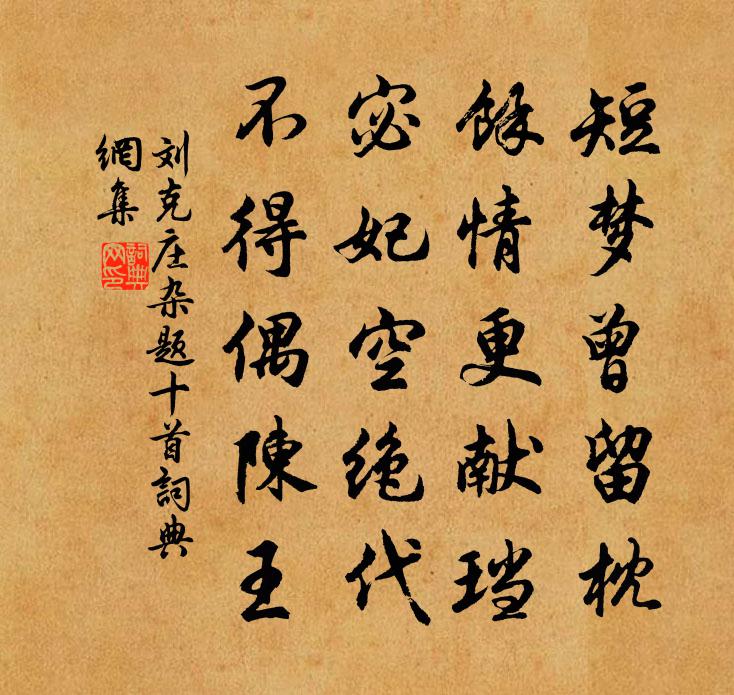 短梦曾留枕
餘情更献珰
宓妃空绝代
不得偶陳王
刘克庄杂题十首詞典
網集
詞典網印